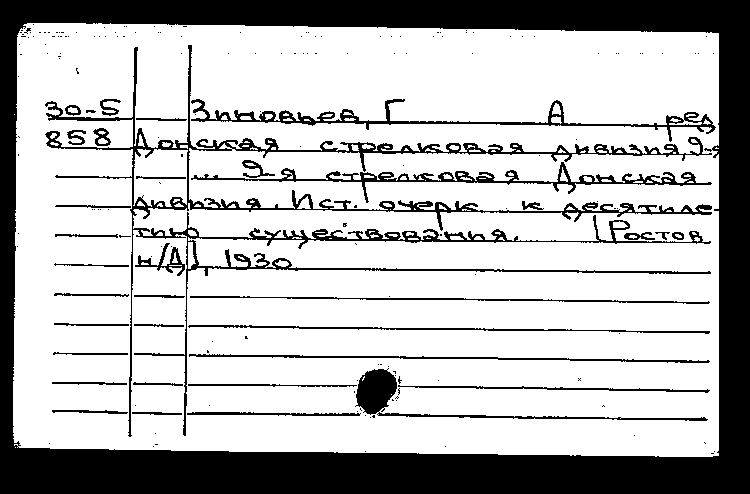 30-5 Зиновьев, Г А , ред.
858 Донская стрелковая дивизия, 9-я
... 9-я стрелковая Донская
дивизия. Ист. очерк к десятиле-
тию существования. [Ростов
н/Д], 1930.